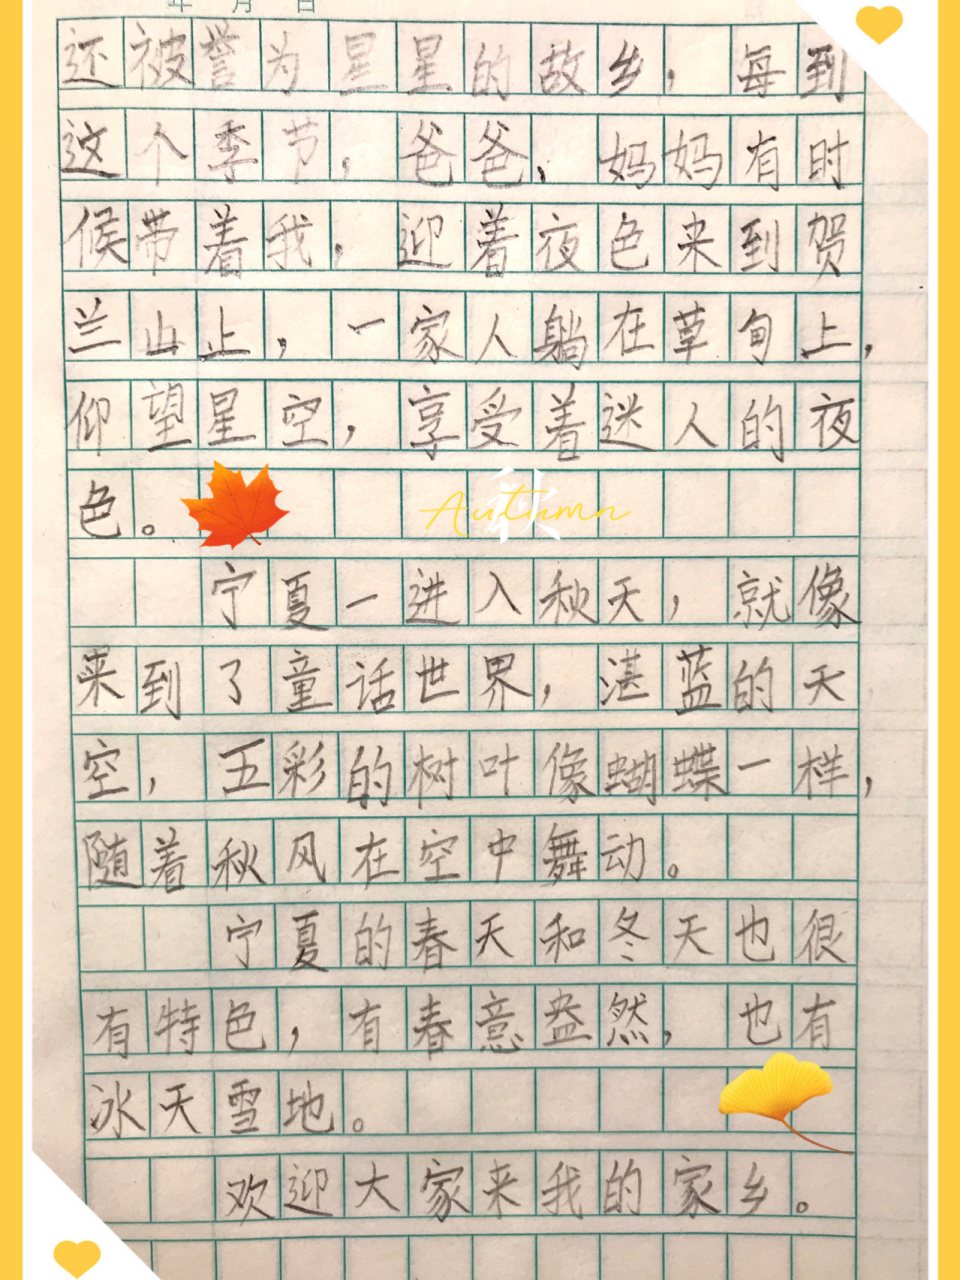 年 月 日
还被誉为星星的故乡，每到
这个季节，爸爸、妈妈有时
候带着我，迎着夜色来到贺
兰山止，一家人躺在草甸上，
仰望星空，享受着迷人的夜
色。
秋
Autumn
宁夏一进入秋天，就像
来到了童话世界，湛蓝的天
空，五彩的树叶像蝴蝶一样，
随着秋风在空中舞动。
宁夏的春天和冬天也很
有特色，有春意盎然，也有
冰天雪地。
欢迎大家来我的家乡。